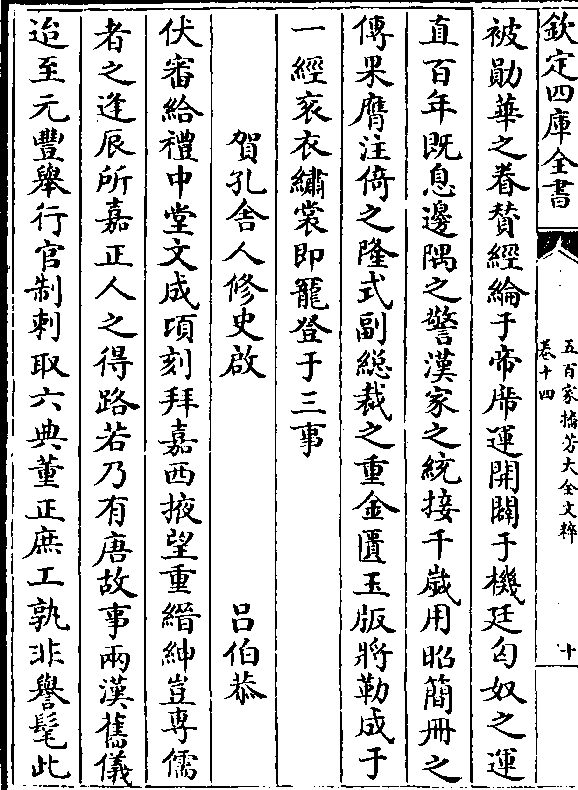 欽定四庫全書
五百家播芳大全文粹
卷十四
十
被勛華之眷賛經綸于帝席運開闢于機廷匈奴之運
直百年既息邊隅之警漢家之統接千歲用昭簡冊之
傳果膺注倚之隆式副緫裁之重金匱玉版將勒成于
一經衮衣繡裳即寵登于三事
賀孔舍人修史啟
呂伯恭
伏審給禮中堂文成頃刻拜嘉西掖望重縉紳豈專儒
者之逢辰所嘉正人之得路若乃有唐故事兩漢舊儀
迨至元豐舉行官制刺取六典董正庶工孰非譽髦此